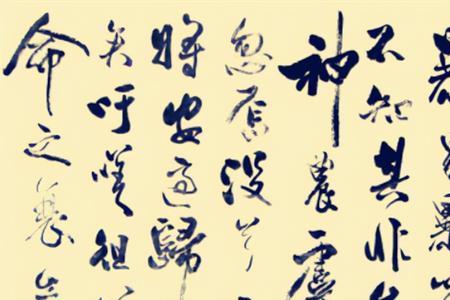 不知其非
神農虞
忽焉沒兮
將安適歸
矣吁嗟徂
命之衰矣